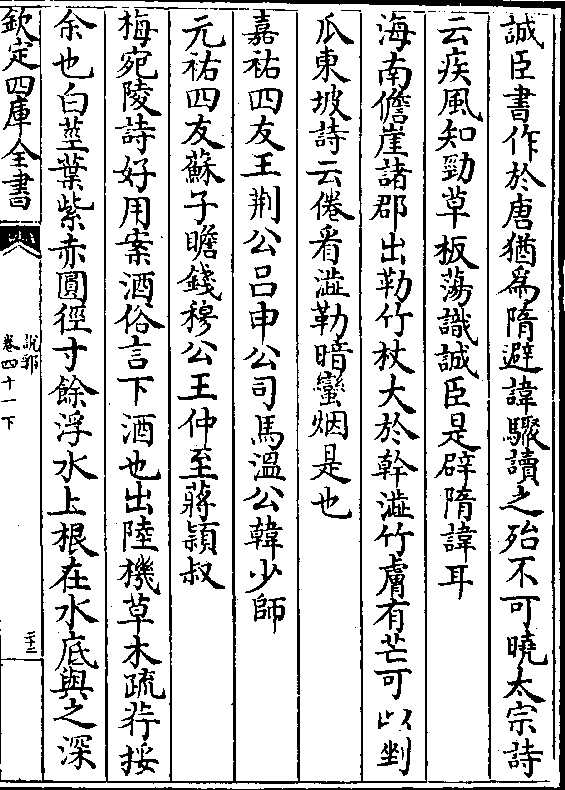 誠臣書作於唐猶為隋避諱驟讀之殆不可曉太宗詩
云疾風知勁草板蕩識誠臣是辟隋諱耳
海南儋崖諸郡出勒竹杖大於幹澁竹膚有芒可以剉
爪東坡詩云倦看澁勒暗蠻烟是也
嘉祐四友王荆公吕申公司馬溫公韓少師
元祐四友蘇子瞻錢穆公王仲至蔣頴叔
梅宛陵詩好用案酒俗言下酒也出陸機草木疏荇接
余也白莖葉紫赤圓徑寸餘浮水上根在水底與之深
欽定四庫全書
說郛
卷四十一下